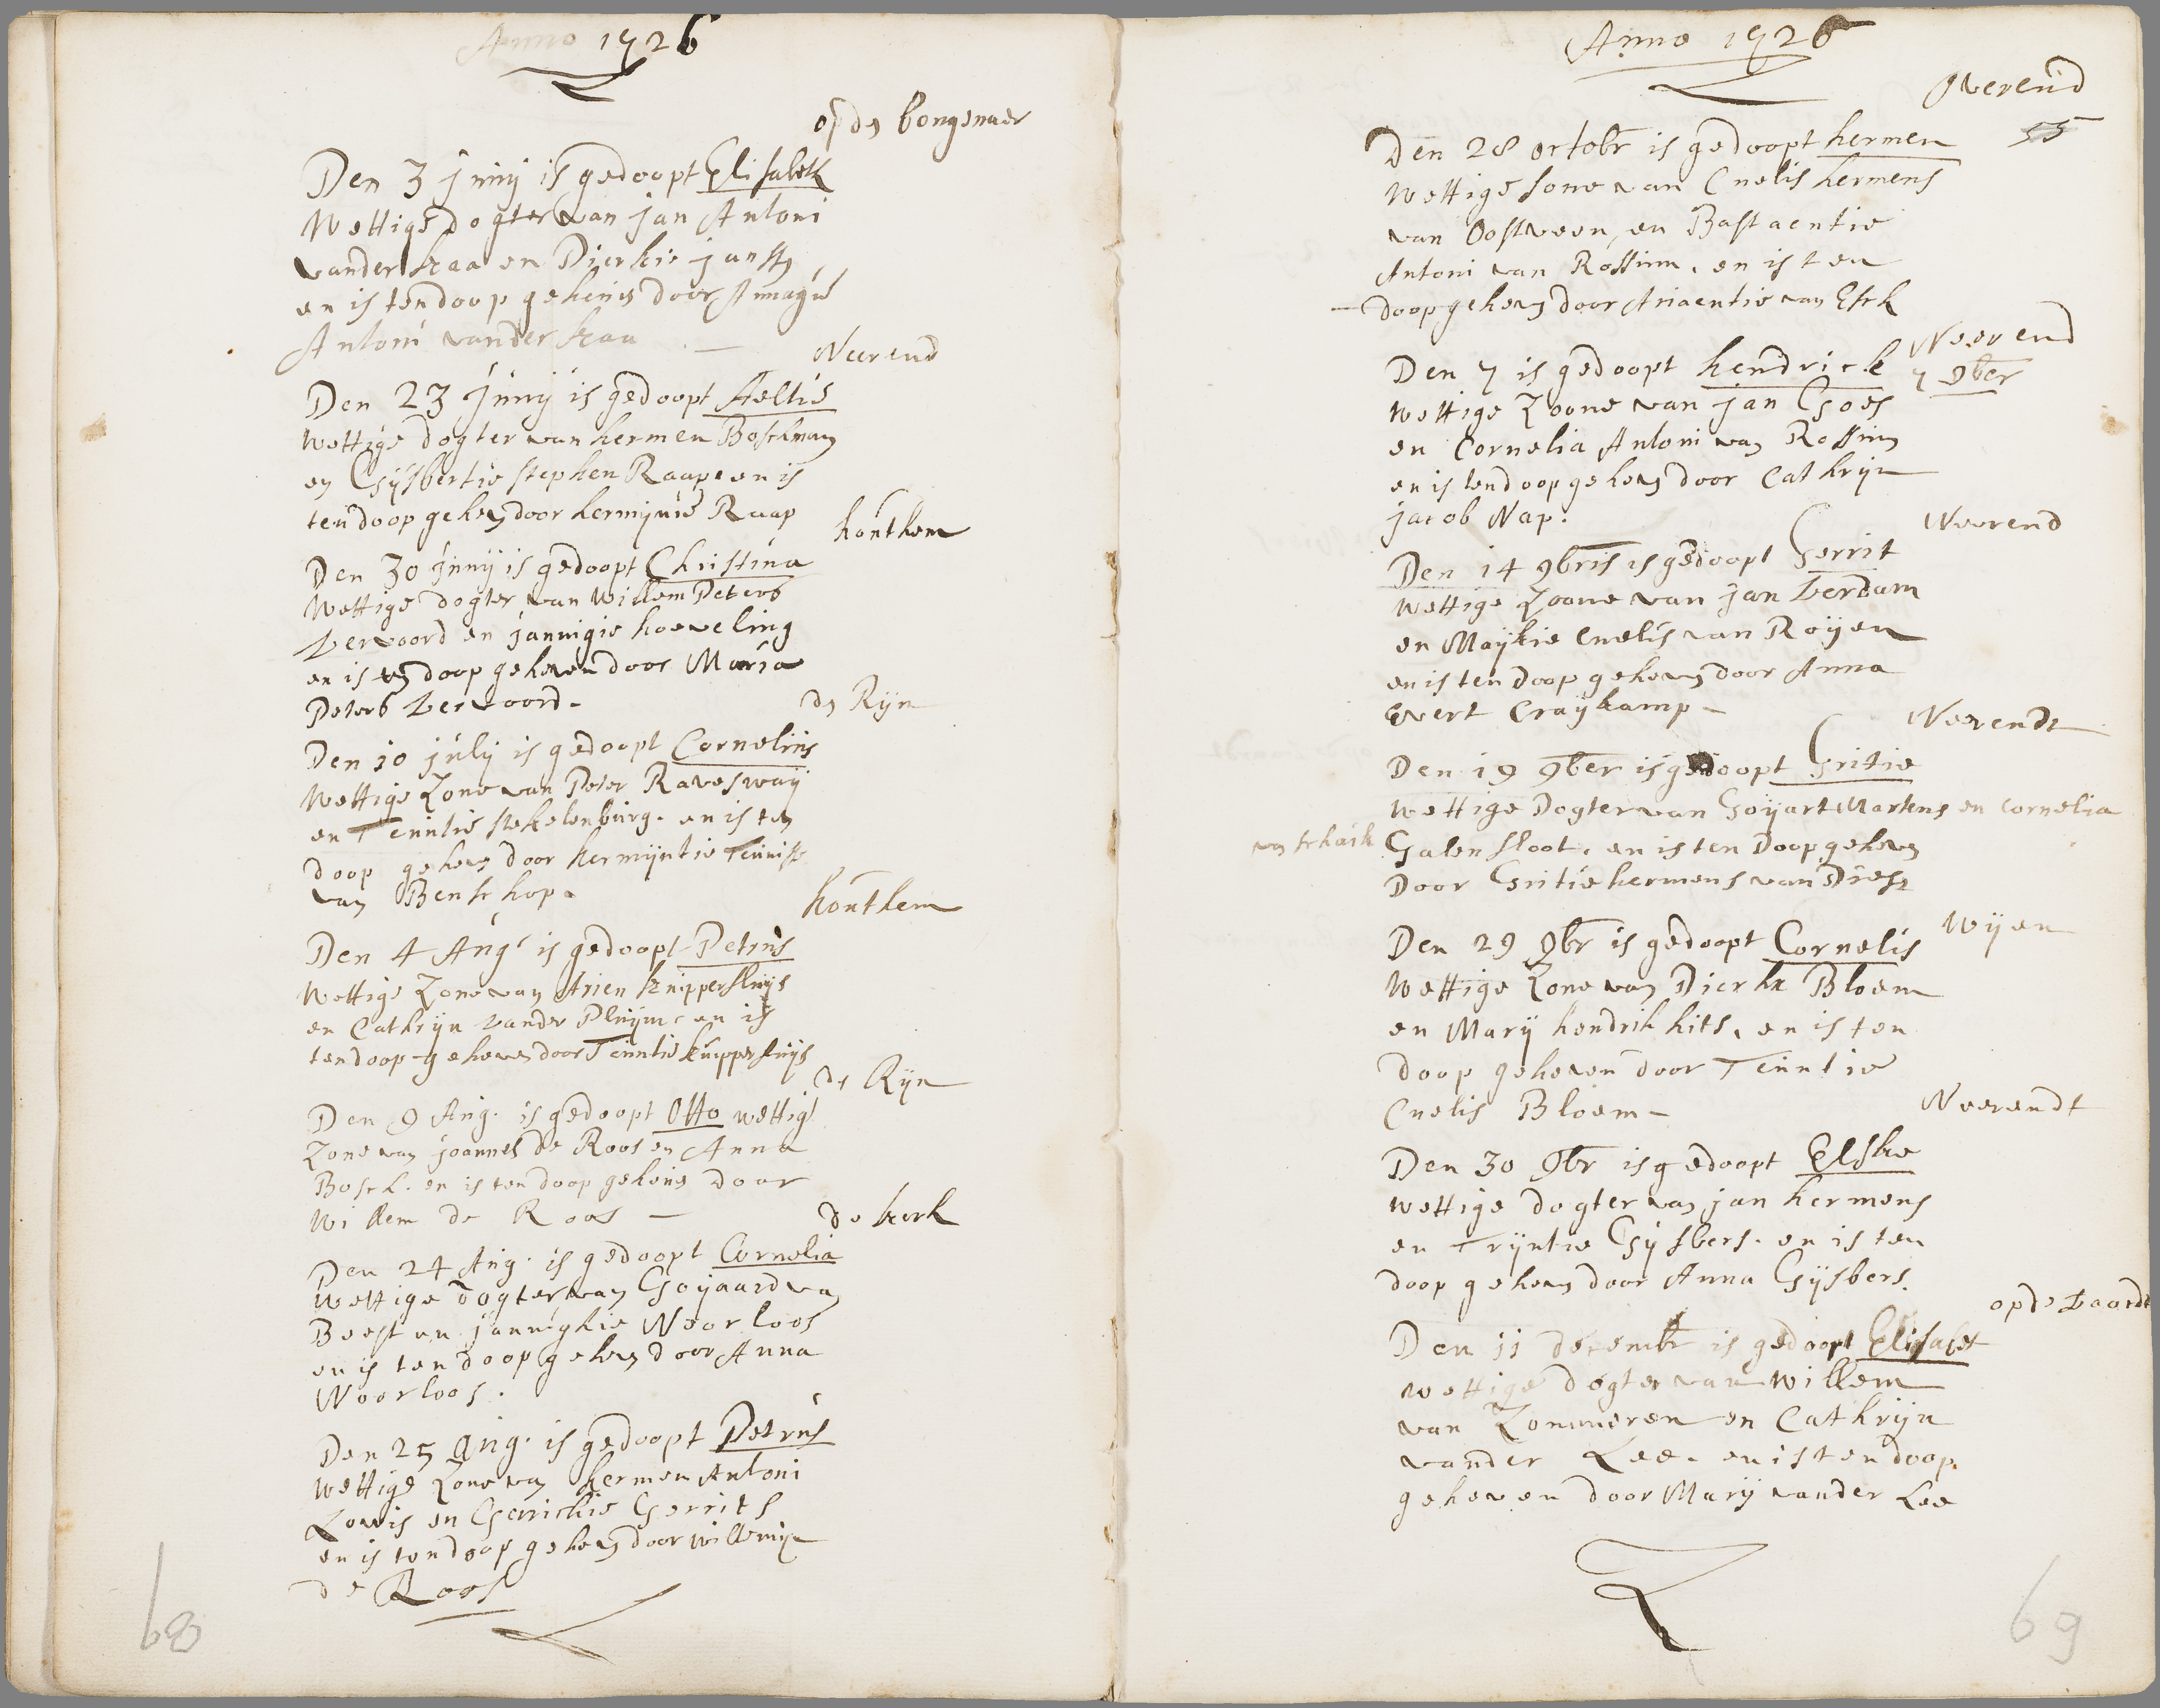 Anno 1726
op den bongenaer
Den 3 junij is gedoopt Elisabeth
Wettige dogter van jan Antoni
vander kaa en Dierkie jansen
en is ten doop geheven door Annagie
Antoni vander kaa —
Neerend
Den 23 junij is gedoopt Aeltie
wettige dogter van hermen Boschman
en Gijsbertie stephen Raap en is
ten doop geheven door hermijnie Raap
houthem
Den 30 junij is gedoopt Christina
Wettige dogter van Willem Peters
vervoord en jannigie hoeveling
en is ten doop geheven door Maria
Peters vervoord -
den Rijn
Den 10 julij is gedoopt Cornelius
Wettige Zone van Peter Raveswaij
en Teuntie stekelenburg. en is ten
doop geheven door hermijntie Teunisse
van Benschop.
houthem
Den 4 Aug is gedoopt Petrus
Wettige Zone van Arien knippersluijs
en Cathrijn vander Pluijm en is
ten doop geheven door Teuntie knippersluijs
de Rijn
Den 9 Aug. is gedoopt Otto wettige
Zone van joannes de Roos en Anna
Bosch. en is ten doop geheven door
Willem de Roos —
de kerk
Den 24 Aug. is gedoopt Cornelia
Wettige dogter van Goijaard van
Beest en jannighie Noorloos
en is ten doop geheven door Anna
Noorloos.
Den 25 Aug. is gedoopt Petrus
wettige Zone van hermen Antoni
Louis en Gerrichie Gerrits
en is ten doop geheven door willemijn
de Roos
68
Anno 1726
Overeind
55
Den 28 octobr is gedoopt hermen
Wettige sone van Cnelis hermens
van Oostveen, en Bastaentie
Antoni van Rossum. en is ten
— doop geheven door Ariaentie van Esch
Neerend
Den 7 is gedoopt hendrick 7 9ber
wettige Zoone van jan Goes
en Cornelia Antoni van Rossum
en is ten doop geheven door Cathrijn
jacob Nap.
Neerend
Den 14 9bris is gedoopt Gerrit
wettige Zoone van jan verdam
en Maijkie Cnelis van Roijen
en is ten doop geheven door Anna
Evert Craijkamp -
Neerendt
Den 19 9ber is gedoopt Gritie
wettige Dogter van Goijart Martens en Cornelia
van schaik Galensloot. en is ten Doop geheven
Door Gritie hermens van Diest
Wijen
Den 29 9br is gedoopt Cornelis
Wettige Zone van Dierk Bloem
en Marij hendrik kits, en is ten
doop geheven door Teuntie
Cnelis Bloem -
Neerendt
Den 30 9br is gedoopt Elske
wettige dogter van jan hermens
en Trijntie Gijsbers. en is ten
doop geheven door Anna Gijsbers.
op de vaardt
Den 11 decembr is gedoopt Elisabet
wettige dogter van Willem
van Zommeren en Cathrijn
vander Lee. en is ten doop
geheven door Marij vander Lee
69